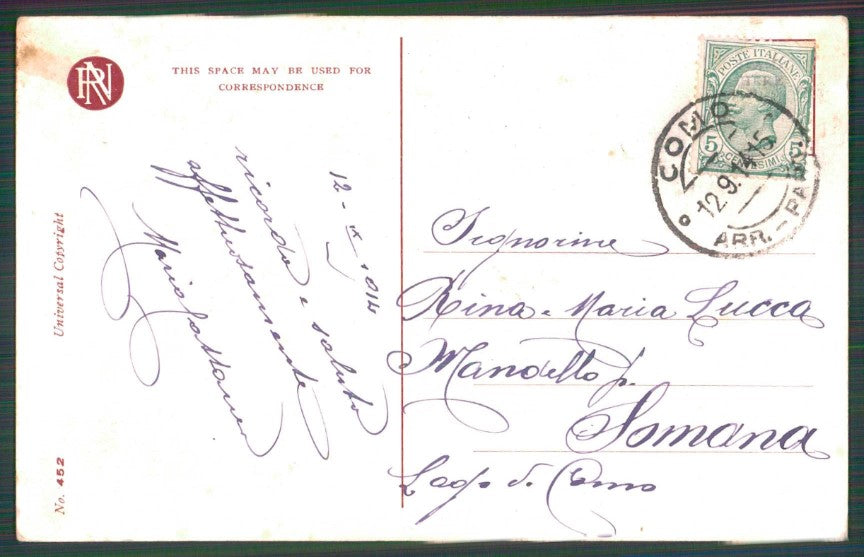 RN
THIS SPACE MAY BE USED FOR
CORRESPONDENCE
12 - IX 1914
ricordo e saluto
affettuosamente
Maria Cattaneo
Universal Copyright
No. 452
POSTE ITALIANE
5 5
CENTESIMI
COMO
12.9.14.15
ARR. - PAR.
Signorine
Rina e Maria Lucca
Mandello p.
Somana
Lago di Como